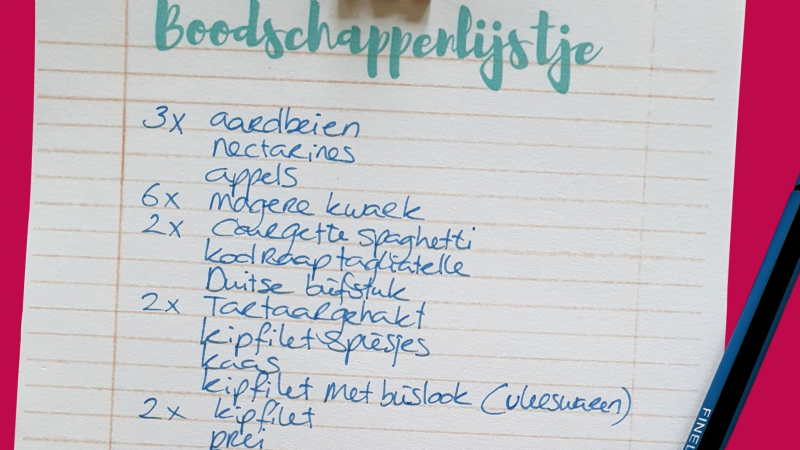 Boodschappenlijstje
3x aardbeien
nectarines
appels
6x magere kwark
2x Courgette spaghetti
koolraap tagliatelle
Duitse biefstuk
2x Tartaargehakt
kipfilet spiesjes
kaas
kipfilet met bieslook (vleeswaren)
2x kipfilet
prei
FINEL